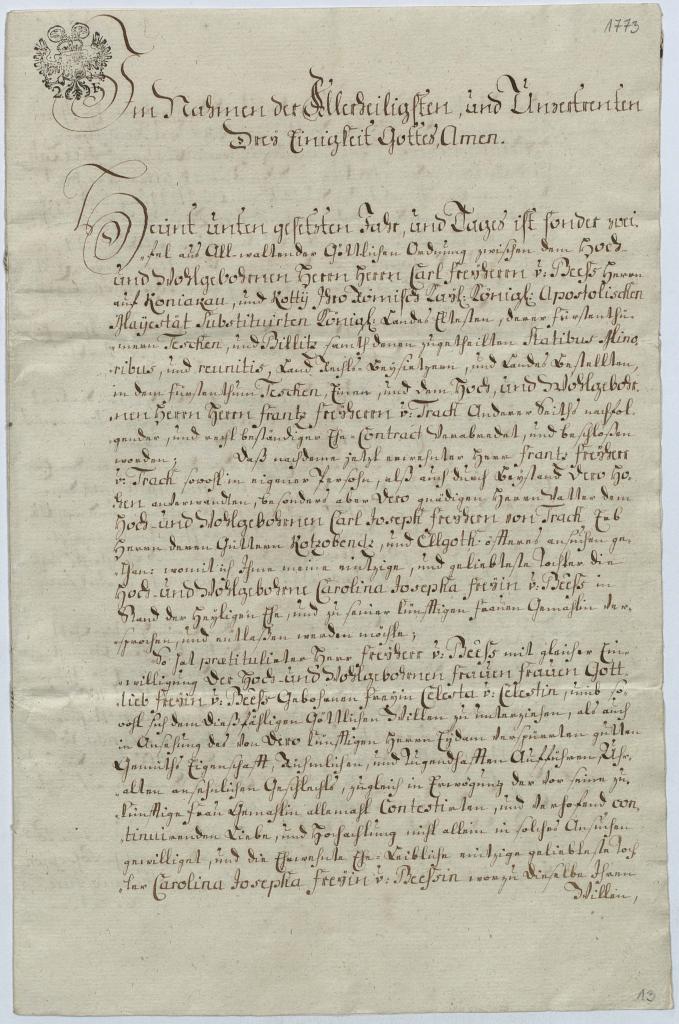 1773
2 K
Im Nahmen der Allerheiligsten, und Unzertrenten
Drey Einigkeit Gottes, Amen.
Heünt unten gesetzten Jahr, und Tages ist sonder zwei-
-fel aus All-waltender Göttlichen Ordnung zwischen dem Hoch-
und Wohlgebohrnen Herrn Herrn Carl freyherrn v: Beess Herrn
auf Koniakau, und Kotty Ihro Römisch Kaÿl: Königl: Apostolischen
Mayestät Substituirten Königl: Landes Eltesten, derer fürstenthü-
-mern Teschen, und Billitz samth denen zugetheilten Statibus Mino-
-ribus, und reunitis, Land Rechts-Beysietzern, und Landes Bestellten,
in dem fürstenthum Teschen, Einen, und dem Hoch, und Wohlgebohr-
-nen Herrn Herrn frantz freyherrn v: Trach Anderer Seiths nachfol-
-gender, und recht beständiger Ehe-Contract Verabredet, und beschloßen
worden; Daß nachdeme jetzt erwehnter Herr frantz freyherr
v: Trach sowohl in eigener Persohn, alß auch durch Beystand Dero Ho-
-hen anverwandten, besonders aber Dero gnädigen Herrn Vatter dem
Hoch- und Wohlgebohrnen Carl Joseph freyhern von Trach Erb
Herrn deren Güttern Kotzobendz, und Ellgoth öffteres ansuchen ge-
-than: womit ich Ihme meine eintzige, und geliebteste Tochter die
Hoch- und Wohlgebohrne Carolina Josepha freyin v: Beess in
Stand der Heyligen Ehe, und zu seiner künfftigen frauen Gemahlin ver-
-sprochen, und entlaßen werden möchte;
So hat prætitulieter Herr freyherr v: Beess mit gleicher Ein-
-willigung Der Hoch- und Wohlgebohrnen frauen frauen Gott-
-lieb freyin v: Beess Gebohrnen freyin Celesta v: Celestin, umb so-
-wohl sich dem dießfähligen Göttlichen Willen zu unterziehen, als auch
in Ansehung des von Dero künfftigen Herrn Eydam verspürten gutten
Gemüths Eigenschafft, Rühmlichen, und Tugendhafften Aufführen, Uhr-
-alten ansehnlichen Geschlechts, zugleich in Erwögung der vor seine zu-
-künfftige Frau Gemahlin allemahl Contestirten, und verhofend con-
-tinuirenden Liebe, und Hochachtung nicht allein in solches Ansuchen
gewilliget, und die Ehrwehnte Ehe-Leibliche eintzige geliebteste Toch-
-ter Carolina Josepha freyin v: Beessin worzu Dieselbe Ihren
Willen,
13